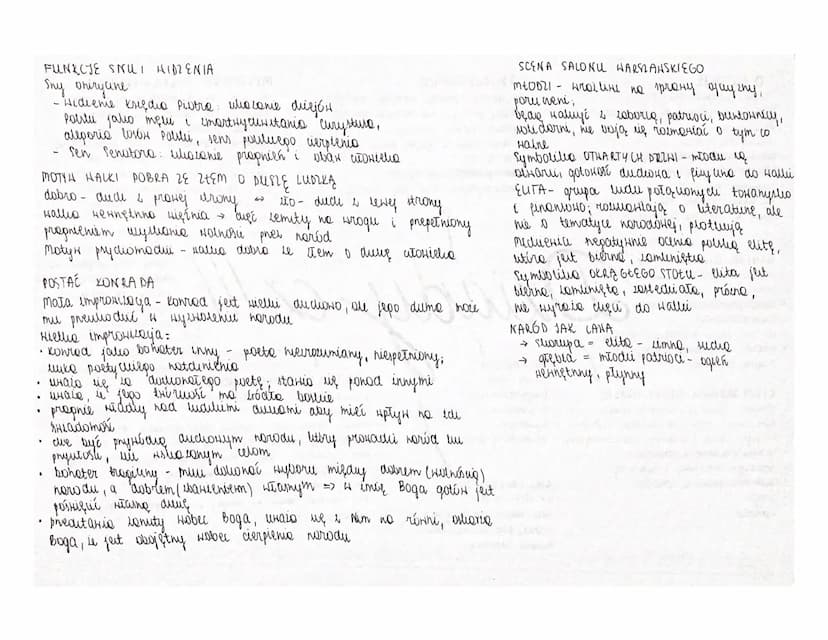 FUNKCJE SNU I WIDZENIA
Sny oniryczne:
- Widzenie Księdza Piotra: ukazanie dziejów
Polski jako męki i zmartwychwstania Chrystusa,
alegoria losów Polski, sens polskiego cierpienia
- Sen Senatora: ukazanie pragnień i obaw człowieka
MOTYW WALKI DOBRA ZE ZŁEM O DUSZĘ LUDZKĄ
dobro - duchy z prawej strony ↔ zło - duchy z lewej strony
walka wewnętrzna więźnia → chęć zemsty na wrogu i przepełniony
pragnieniem uzyskania wolności przez naród
Motyw psychomachii - walka dobra ze złem o duszę człowieka
POSTAĆ KONRADA
Mała improwizacja - Konrad jest wielki duchowo, ale jego duma może
mu przeszkodzić w wyzwoleniu narodu
Wielka improwizacja:
• Konrad jako bohater inny - poeta niezrozumiany, niespełniony;
szuka poetyckiego natchnienia
• uważa się za doskonałego poetę; stawia się ponad innymi
• uważa, że jego twórczość ma źródło boskie
• pragnie władzy nad ludzkimi duszami aby mieć wpływ na ich
świadomość
• chce być przywódcą duchowym narodu, który prowadzi naród ku
przyszłości, ku wskazanym celom
• bohater tragiczny - musi dokonać wyboru między dobrem (wolnością)
narodu, a dobrem (zbawieniem) własnym => w imię Boga gotów jest
poświęcić własną duszę
• przedstawia zarzuty wobec Boga, uważa się z Nim na równi, oskarża
Boga, że jest obojętny wobec cierpienia narodu
SCENA SALONU WARSZAWSKIEGO
MŁODZI - wrażliwi na sprawy ojczyzny,
poruszeni;
będą walczyć z zaborcą, patrioci, buntownicy,
solidarni, nie boją się rozmawiać o tym co
ważne
Symbolika OTWARTYCH DRZWI - młodzi są
otwarci, gotowość duchowa i fizyczna do walki
ELITA - grupa ludzi połączonych towarzysko
i finansowo; rozmawiają o literaturze, ale
nie o tematyce narodowej, plotkują
Mickiewicz negatywnie ocenia polską elitę,
która jest bierna, zamknięta
Symbolika OKRĄGŁEGO STOŁU - elita jest
bierna, zamknięta, zasiedziała, próżna,
nie wyraża chęci do walki
NARÓD JAK LAWA
→ skorupa = elita - zimna, sucha
→ głębia = młodzi patrioci - ogień
wewnętrzny, płynny